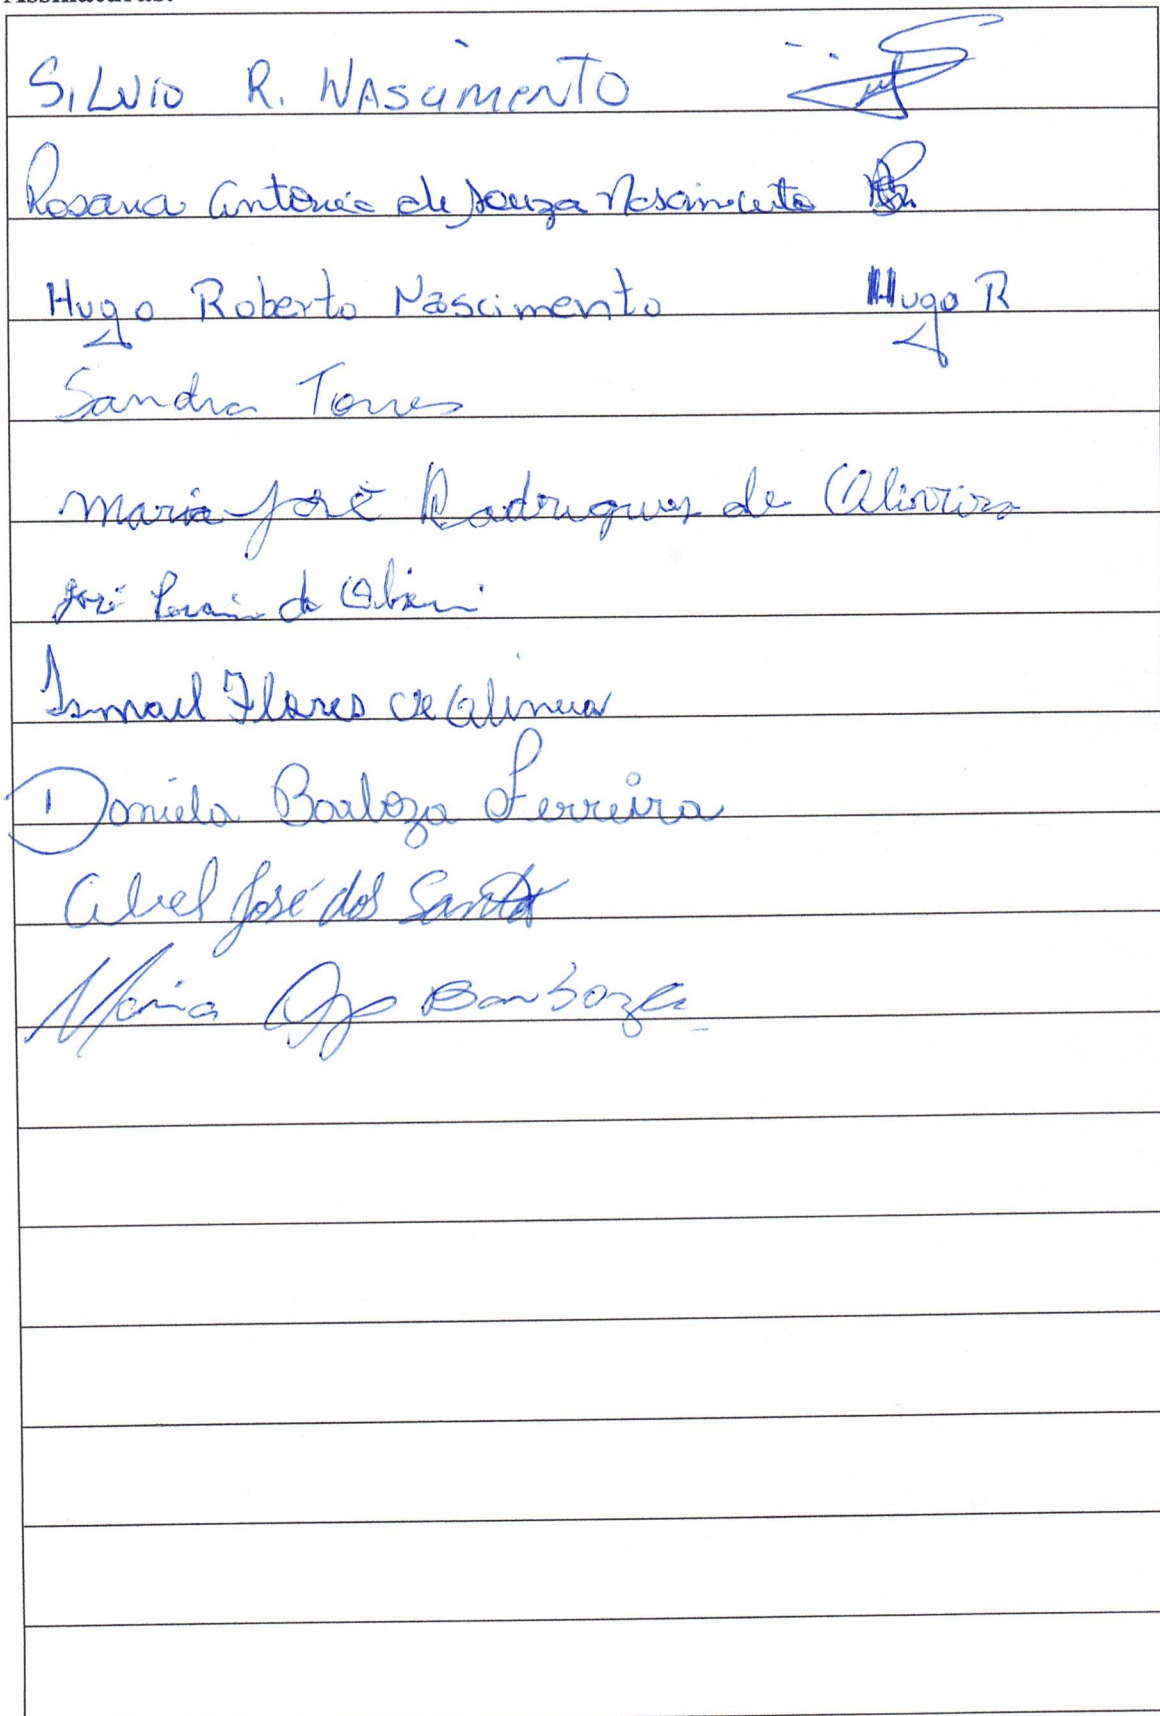 Assinaturas:
SILVIO R. NASCIMENTO
Rosana Antonia de Souza Nascimento
Hugo Roberto Nascimento Hugo R
Sandra Torres
Maria José Rodrigues de Oliveira
José de
Ismael Flores de Oliveira
Daniela Barboza Ferreira
Abel José dos Santos
Maria Barboza